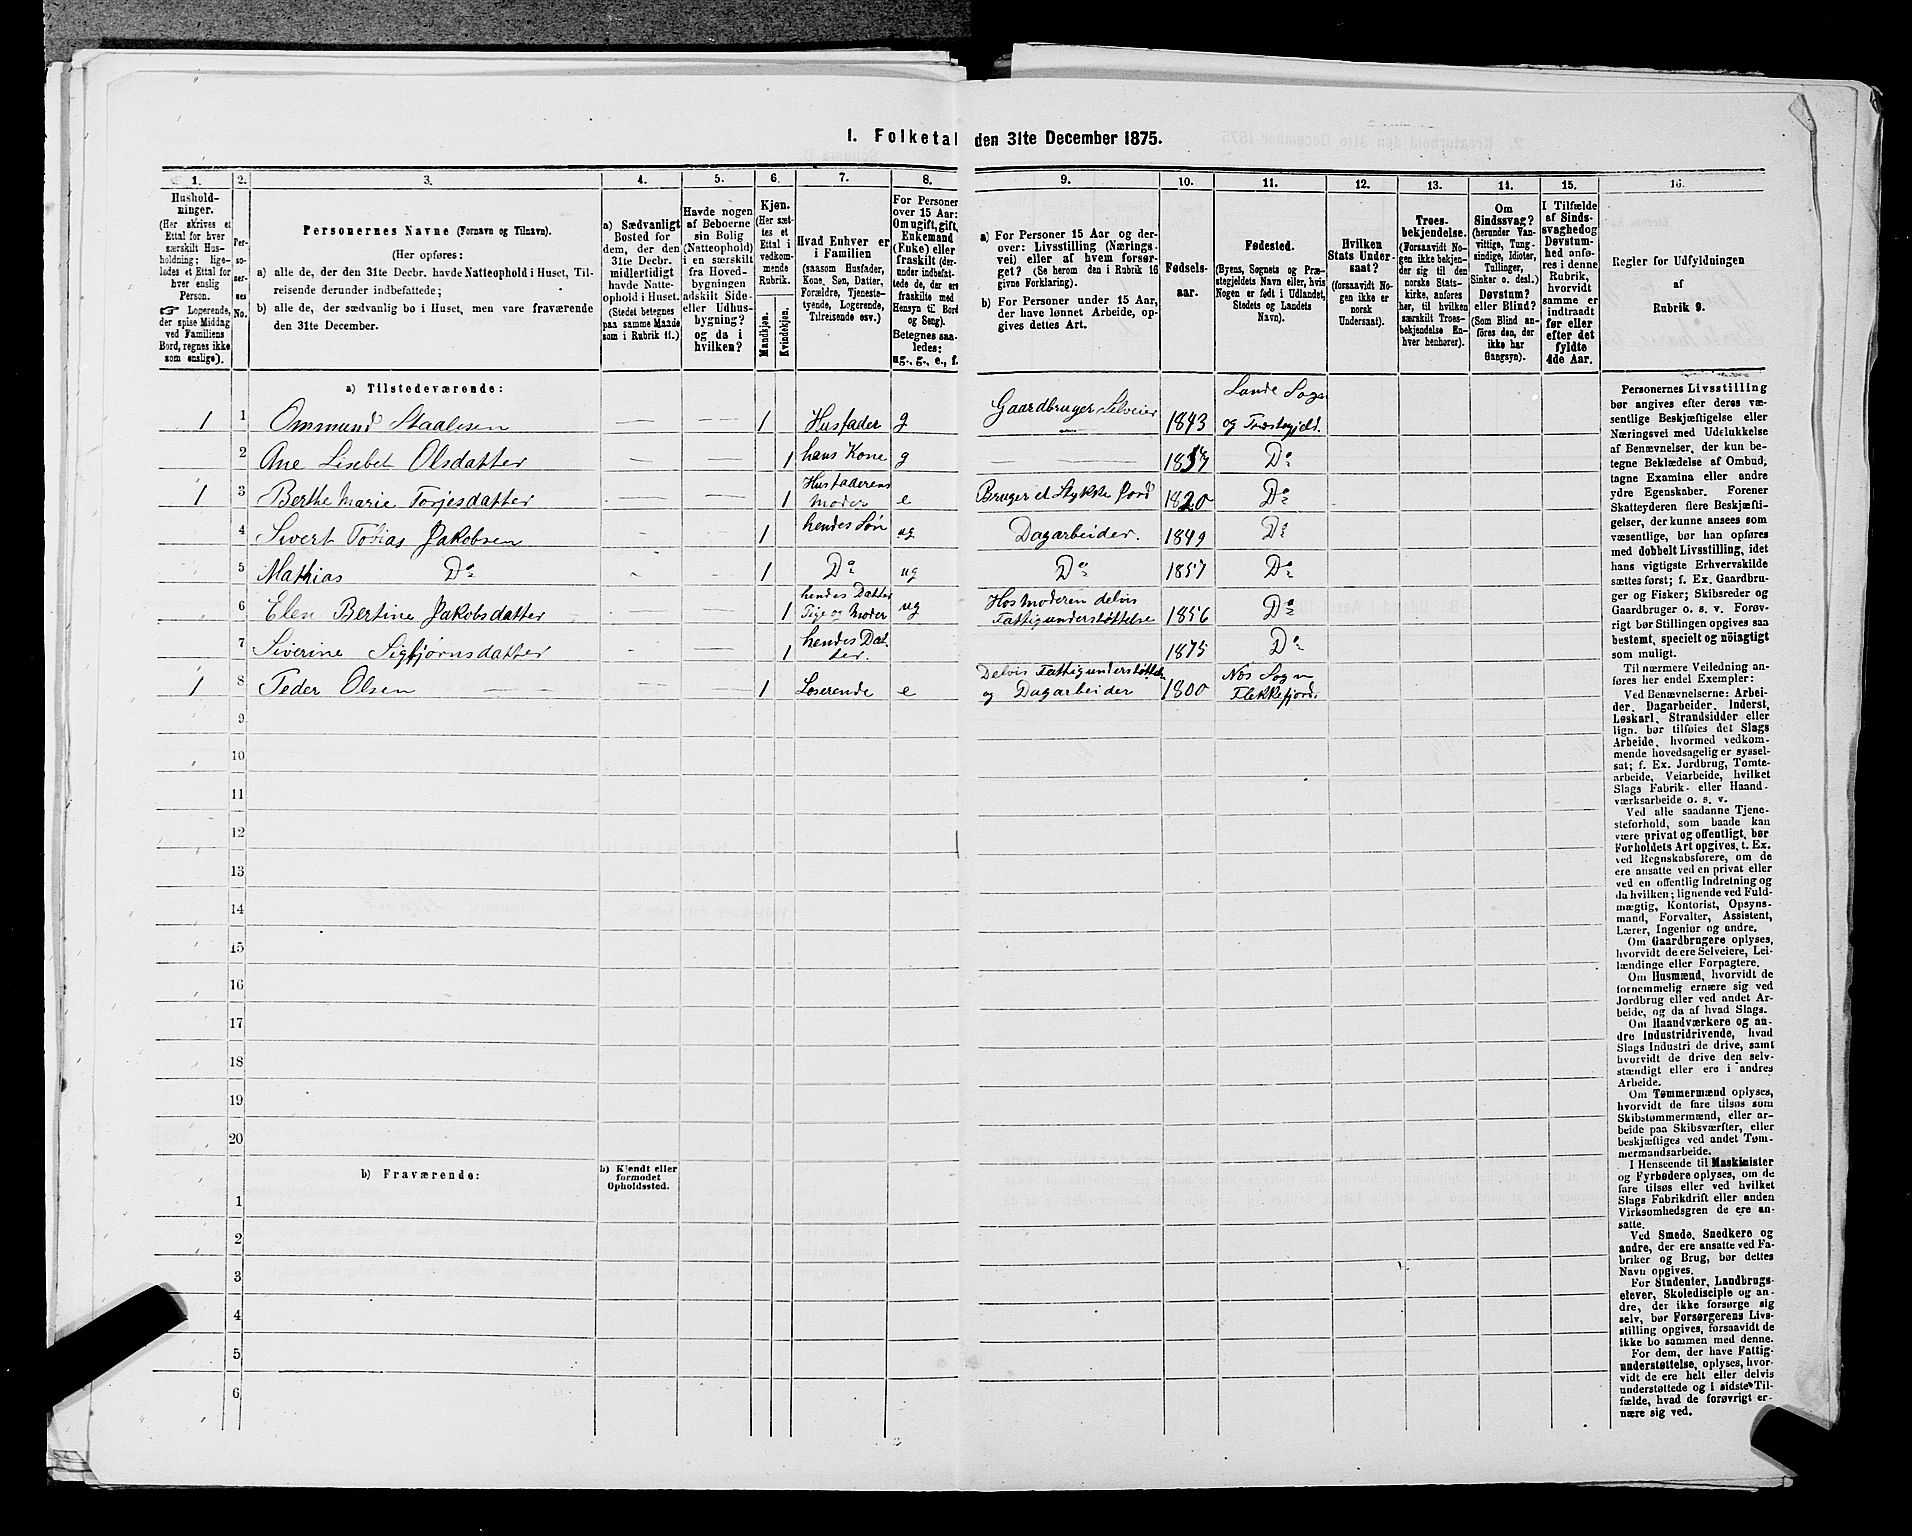 1. Folketal den 31te December 1875.
1.
2.
3.
4.
5.
6.
7.
8.
9.
10.
11.
12.
13.
14.
15.
16.
Hushold-
ninger.
(Her skrives et
Ettal for hver
særskilt Hus-
holdning; lige-
ledes et Ettal for
hver enslig
Person.
☞ Logerende,
der spise Middag
ved Familiens
Bord, regnes ikke
som enslige).
Per-
so-
ner-
nes
No.
Personernes Navne (Fornavn og Tilnavn).
(Her opføres:
a) alle de, der den 31te Decbr. havde Natteophold i Huset, Til-
reisende derunder indbefattede;
b) alle de, der sædvanlig bo i Huset, men vare fraværende
den 31te December.
a) Sædvanligt
Bosted for
dem, der den
31te Decbr.
midlertidigt
havde Natte-
ophold i Huset.
(Stedet betegnes
paa samme Maade
som i Rubrik 11.)
Havde nogen
af Beboerne
sin Bolig
(Natteophold)
i en særskilt
fra Hoved-
bygningen
adskilt Side-
eller Udhus-
bygning?
og da i
hvilken?
Kjøn.
(Her sæt-
tes et
Ettal i
vedkom-
mende
Rubrik.
Mandkjøn.
Kvindekjøn.
Hvad Enhver er
i Familien
(saasom Husfader,
Kone, Søn, Datter,
Forældre, Tjeneste-
tyende, Logerende,
Tilreisende osv.)
For Personer
over 15 Aar:
Om ugift, gift,
Enkemand
(Enke) eller
fraskilt (der-
under indbefat-
tede de, der ere
fraskilte med
Hensyn til Bord
og Seng).
Betegnes saa-
ledes:
ug., g., e., f.
a) For Personer 15 Aar og der-
over: Livsstilling (Nærings-
vei) eller af hvem forsør-
get? (Se herom den i Rubrik 16
givne Forklaring).
b) For Personer under 15 Aar,
der have lønnet Arbeide, op-
gives dettes Art.
Fødsels-
aar.
Fødested.
(Byens, Sognets og Præ-
stegjeldets Navn eller, hvis
Nogen er født i Udlandet,
Stedets og Landets
Navn).
Hvilken
Stats Under-
saat?
(forsaavidt No-
gen ikke er
norsk
Undersaat).
Troes-
bekjendelse.
(Forsaavidt No-
gen ikke bekjen-
der sig til den
norske Stats-
kirke, anføres
her, til hvilken
særskilt Troes-
bekjendelse En-
hver henhører).
Om
Sindssvag?
(herunder Van-
vittige, Tung-
sindige, Idioter,
Tullinger,
Sinker o. desl.)
Døvstum?
eller Blind?
(Som Blind an-
føres den, der
ikke har
Gangsyn).
I Tilfælde
af Sinds-
svaghed og
Døvstum-
hed anfø-
res i denne
Rubrik,
hvorvidt
samme er
indtraadt
før eller
efter det
fyldte
4de Aar.
Regler for Udfyldningen
af
Rubrik 9.
a) Tilstedeværende:
1 1 Ommund Staalesen — — 1 Husfader g Gaardbruger Selveier 1843 Lunde Sogn og Præstegjeld.
2 Ane Lisebet Olsdatter — — 1 hans Kone g — 1857 Do
1 3 Berthe Marie Torjesdatter — — 1 Husfaderens Moder e Bruger et Stykke Jord 1820 Do
4 Sivert Tobias Jakobsen — — 1 hendes Søn ug Dagarbeider. 1849 Do
5 Mathias Do — — 1 Do ug Do 1857 Do
6 Elen Bertine Jakobsdatter — — 1 hendes Datter Pige og Moder ug Hos moderen delvis Fattigunderstøttelse 1856 Do
7 Siverine Sigbjørnsdatter — — 1 hendes Datter. 1875 Do
1 8 Peder Olsen — — — 1 Loserende e Delvis Fattigunderstøttelse og Dagarbeider 1800 Nes Sogn Flekkefjord.
9
10
11
12
13
14
15
16
17
18
19
20
b) Fraværende:
b) Kjendt eller
formodet
Opholdssted.
1
2
3
4
5
6
Personernes Livsstilling
bør angives efter deres væ-
sentlige Beskjæftigelse eller
Næringsvei med Udelukkelse
af Benævnelser, der kun be-
tegne Beklædelse af Ombud,
tagne Examina eller andre
ydre Egenskaber. Forener
Skatteyderen flere Beskjæfti-
gelser, der kunne ansees som
væsentlige, bør han opføres
med dobbelt Livsstilling, idet
hans vigtigste Erhvervskilde
sættes først; f. Ex. Gaardbru-
ger og Fisker; Skibsreder og
Gaardbruger o. s. v. Forøv-
rigt bør Stillingen opgives saa
bestemt, specielt og nöiagtigt
som muligt.
Til nærmere Veiledning an-
føres her endel Exempler:
Ved Benævnelserne: Arbei-
der, Dagarbeider, Inderst,
Løskarl, Strandsidder eller
lign. bør tilføies det Slags
Arbeide, hvormed vedkom-
mende hovedsagelig er syssel-
sat; f. Ex. Jordbrug, Tomte-
arbeide, Veiarbeide, hvilket
Slags Fabrik- eller Haand-
værksarbeide o. s. v.
Ved alle saadanne Tjene-
steforhold, som baade kan
være privat og offentligt, bør
Forholdets Art opgives, t. Ex.
ved Regnskabsførere, om de
ere ansatte ved en privat eller
ved en offentlig Indretning og
da hvilken; lignende ved Fuld-
mægtig, Kontorist, Opsyns-
mand, Forvalter, Assistent,
Lærer, Ingeniør og andre.
Om Gaardbrugere oplyses,
hvorvidt de ere Selveiere, Lei-
lændinge eller Forpagtere.
Om Husmænd, hvorvidt de
fornemmelig ernære sig ved
Jordbrug eller ved andet Ar-
beide, og da af hvad Slags.
Om Haandværkere og an-
dre Industridrivende, hvad
Slags Industri de drive, samt
hvorvidt de drive den selv-
stændigt eller ere i andres
Arbeide.
Om Tømmermænd oplyses,
hvorvidt de fare tilsøs som
Skibstømmermænd, eller ar-
beide paa Skibsværfter, eller
beskjæftiges ved andet Tøm-
mermandsarbeide.
I Henseende til Maskinister
og Fyrbødere oplyses, om de
fare tilsøs eller ved hvilket
Slags Fabrikdrift eller anden
Virksomhedsgren de ere an-
satte.
Ved Smede, Snedkere og
andre, der ere ansatte ved Fa-
briker og Brug, bør dettes
Navn opgives.
For Studenter, Landbrugs-
elever, Skoledisciple og an-
dre, der ikke forsørge sig
selv, bør Forsørgerens Livs-
stilling opgives, forsaavidt de
ikke bo sammen med denne.
For dem, der have Fattig-
understøttelse, oplyses, hvor-
vidt de ere helt eller delvis
understøttede og i sidste Til-
fælde, hvad de forøvrigt er-
nære sig ved.